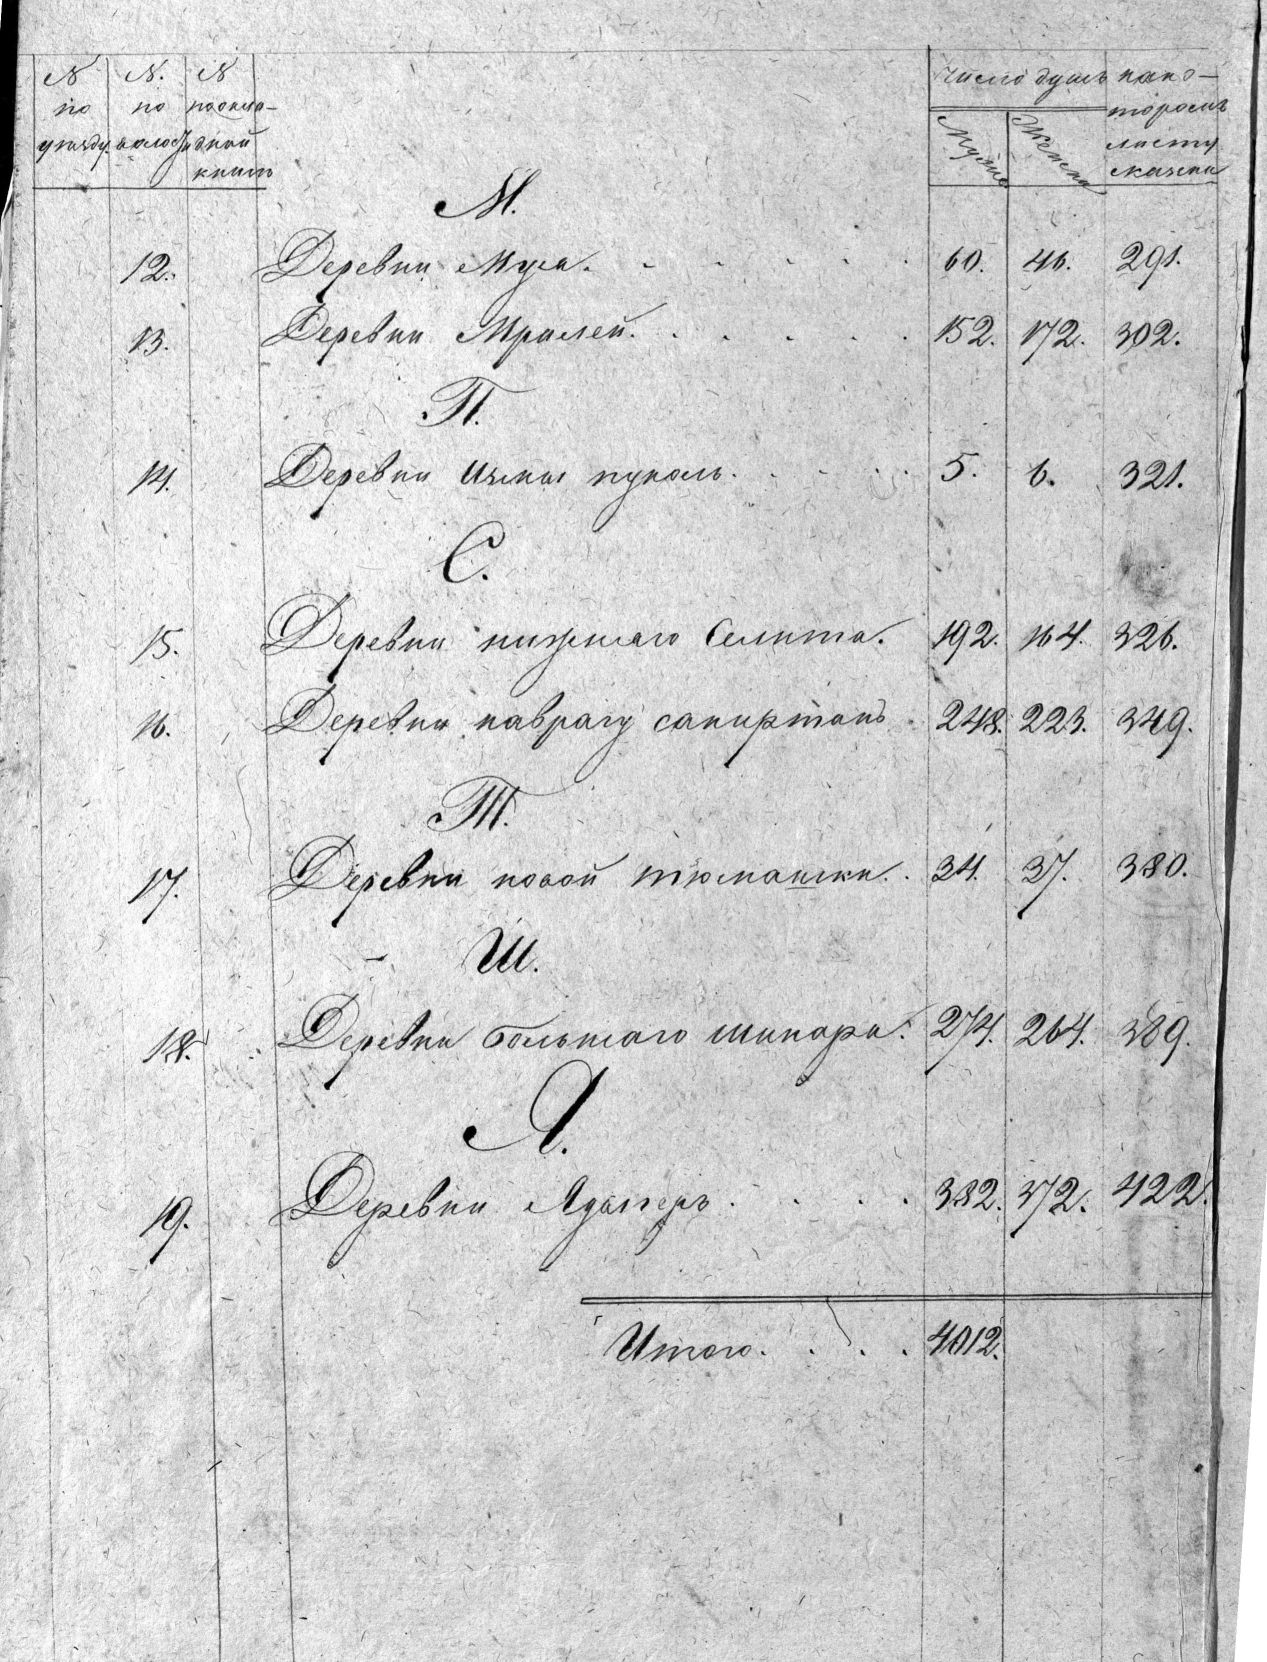 N по уѣзду N. по волости N по окладной книгѣ Число душъ Мужс Женска на которомъ листу сказка
М.
12. Деревни Муса. 60. 46. 291.
13. Деревни Мралей. 152. 172. 302.
П.
14. Деревни 5. 6. 321.
С.
15. Деревни нижняго Селита. 192. 164. 326.
16. Деревни наврагу 248. 223. 349.
Т.
17. Деревни новой 34. 37. 380.
Ш.
18. Деревни большаго шинара. 274. 264. 389.
Я.
19. Деревни Ядыгеръ 382. 372. 422.
Итого. 4012.